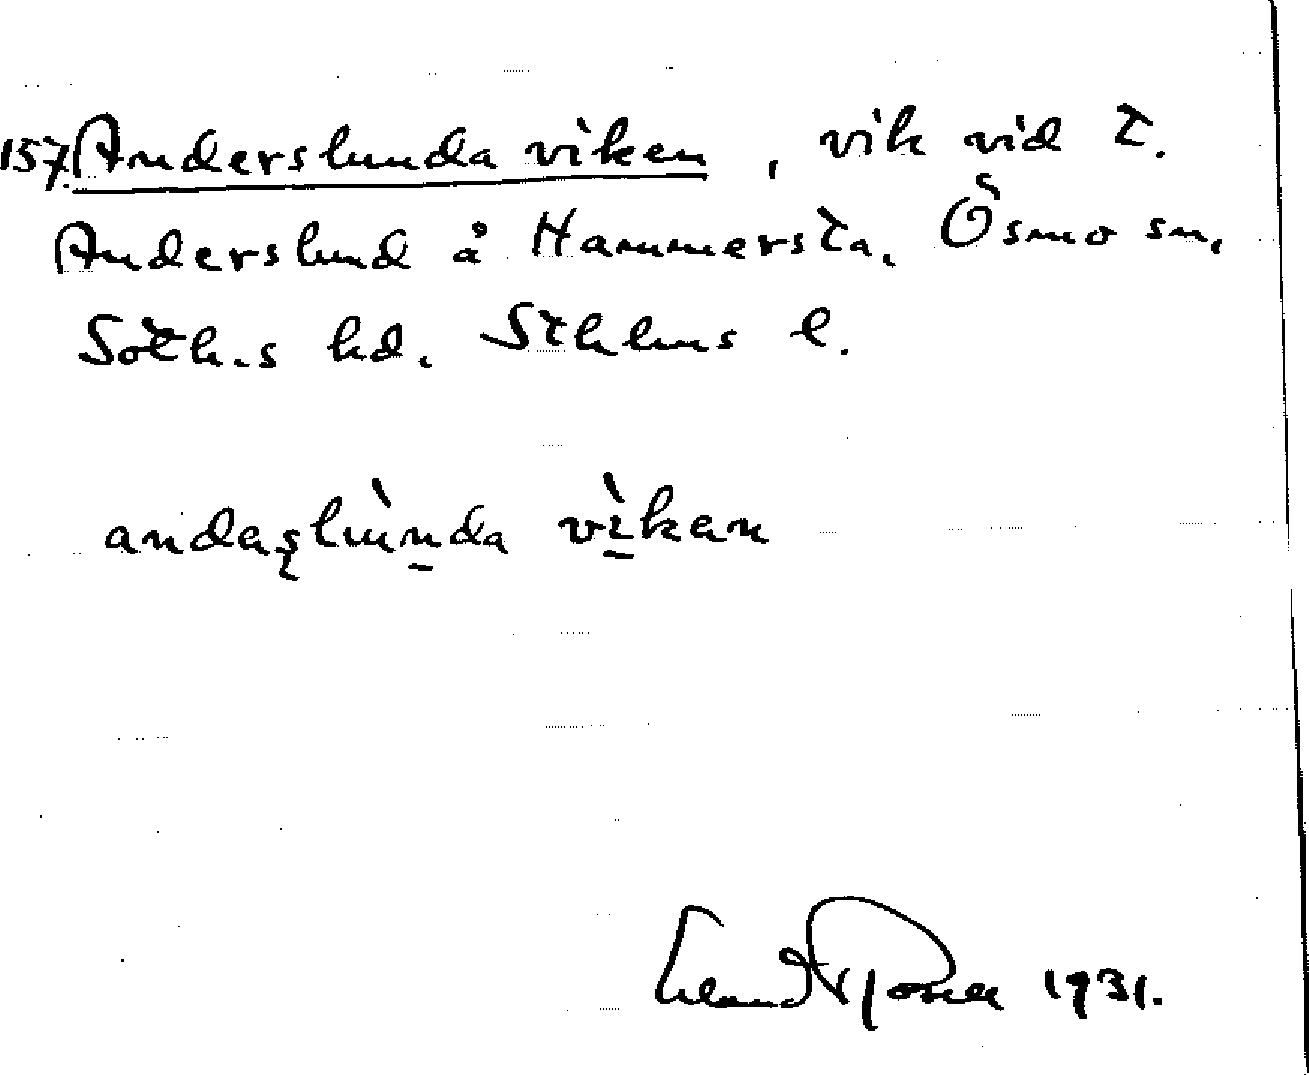 157. Anderslunda viken, vik vid t.
Anderslund å Hammersta. Ösmo sn.
Soth.s hd. Sthlms l.
andaʂlùnda vìkan
Erland Rosell 1931.